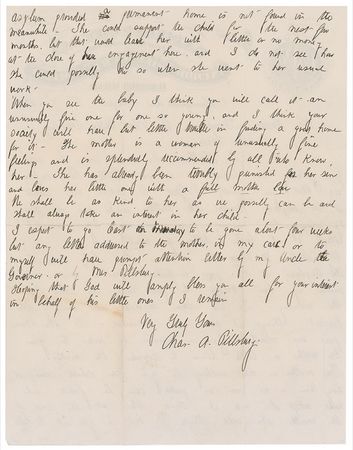 asylum provided a permanent home is not found in the
meanwhile - She could support the child for the next few
months, but this would leave her with little or no money
at the close of her engagement here, and I do not see how
she could possibly do so when she went to her usual
work -
When you see the baby I think you will call it an
unusually fine one for one so young, and I think your
society will have but little trouble in finding a good home
for it - The mother is a woman of unusually fine
feelings and is splendidly recommended by all who know
her - She has already been terribly punished for her sin
and loves her little one with a full mother love
We shall be as kind to her as we possibly can be and
shall always take an interest in her child -
I expect to go East on Monday to be gone about four weeks
but any letter addressed to the mother, in my care or to
myself will have prompt attention either by my Uncle the
Governor - or by Mrs. Pillsbury -
Hoping that God will amply bless you all for your interest
in behalf of his little ones I remain
Very Truly Yours
Chas. A. Pillsbury -